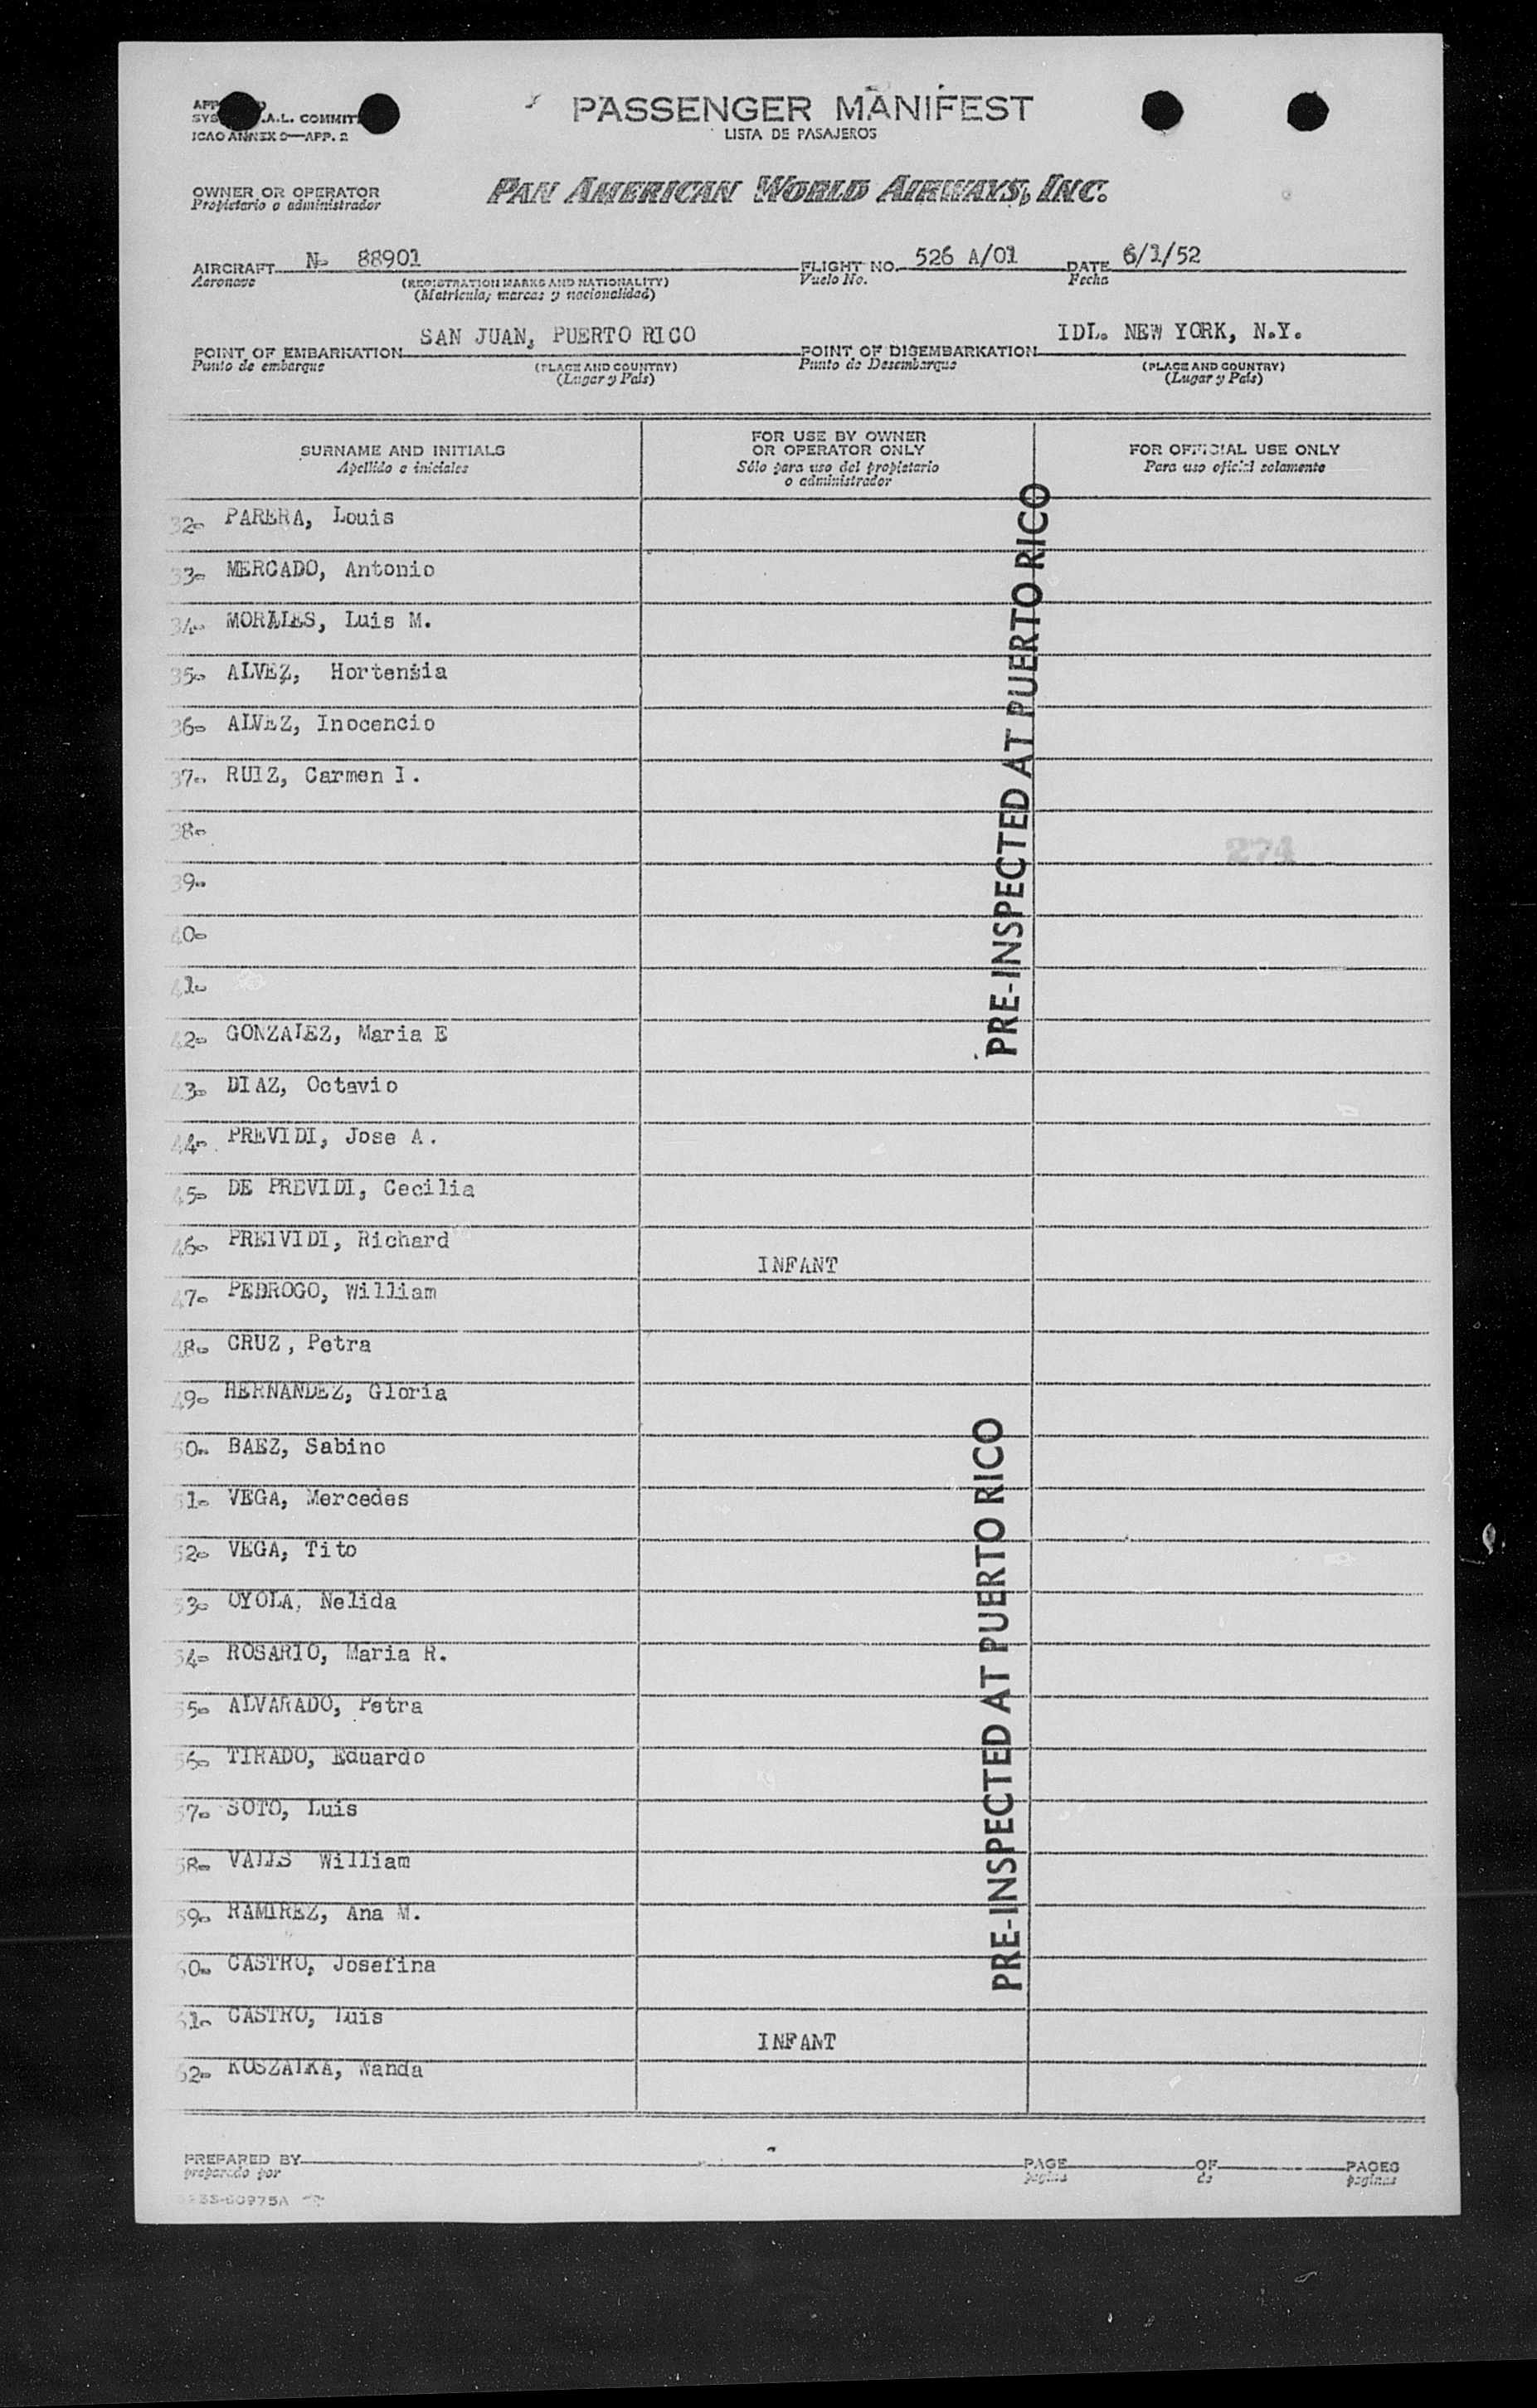 PASSENGER MANIFEST
LISTA DE PASAJEROS
.A.L. COMMIT
ICAO ANNEX 9—APP. 2
OWNER OR OPERATOR
Propietario o administrador
PAN AMERICAN WORLD AIRWAYS, INC.
AIRCRAFT N- 88901 FLIGHT NO. 526 A/01 DATE 6/1/52
Aeronave (REGISTRATION MARKS AND NATIONALITY) Vuelo No. Fecha
(Matricula; marcas y nacionalidad)
POINT OF EMBARKATION SAN JUAN, PUERTO RICO POINT OF DISEMBARKATION IDL. NEW YORK, N.Y.
Punto de embarque (PLACE AND COUNTRY) Punto de Desembarque (PLACE AND COUNTRY)
(Lugar y País) (Lugar y País)
SURNAME AND INITIALS
Apellido e iniciales
FOR USE BY OWNER
OR OPERATOR ONLY
Sólo para uso del propietario
o administrador
FOR OFFICIAL USE ONLY
Para uso oficial solamente
32- PARERA, Louis
33- MERCADO, Antonio
34- MORALES, Luis M.
35- ALVEZ, Hortensia
36- ALVEZ, Inocencio
37- RUIZ, Carmen I.
38-
274
39-
40-
41-
42- GONZALEZ, Maria E
43- DIAZ, Octavio
44- PREVIDI, Jose A.
45- DE PREVIDI, Cecilia
46- PREIVIDI, Richard INFANT
47- PEDROGO, William
48- CRUZ, Petra
49- HERNANDEZ, Gloria
50- BAEZ, Sabino
51- VEGA, Mercedes
52- VEGA, Tito
53- OYOLA, Nelida
54- ROSARIO, Maria R.
55- ALVARADO, Petra
56- TIRADO, Eduardo
57- SOTO, Luis
58- VALLS William
59- RAMIREZ, Ana M.
60- CASTRO, Josefina
61- CASTRO, Luis INFANT
62- KOSZALKA, Wanda
PRE-INSPECTED AT PUERTO RICO
PRE-INSPECTED AT PUERTO RICO
PREPARED BY PAGE OF PAGES
preparado por pagina de paginas